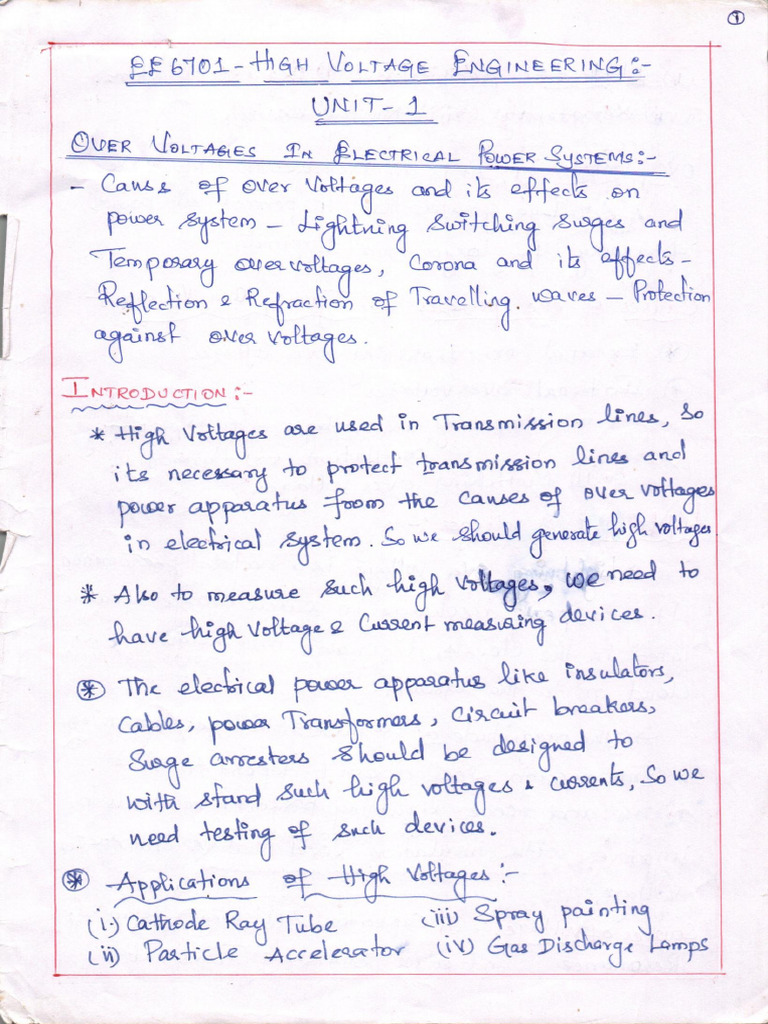 1
EE6701 - HIGH VOLTAGE ENGINEERING:-
UNIT - 1
OVER VOLTAGES IN ELECTRICAL POWER SYSTEMS:-
- Causs of over voltages and its effects on
power system - Lightning switching surges and
Temporary overvoltages, Corona and its effects -
Reflection & Refraction of Travelling. waves - Protection
against over voltages.
INTRODUCTION:-
* High Voltages are used in Transmission lines, so
its necessary to protect transmission lines and
power apparatus from the causes of over voltages
in electrical system. So we should generate high voltages
* Also to measure such high voltages, we need to
have high voltage & Current measuring devices.
* The electrical power apparatus like insulators,
cables, power Transformers, circuit breakers,
Surge arresters should be designed to
with stand such high voltages & currents, So we
need testing of such devices.
* Applications of High Voltages:-
(i) Cathode Ray Tube (iii) Spray painting
(ii) Particle Accelerator (iv) Gas Discharge Lamps